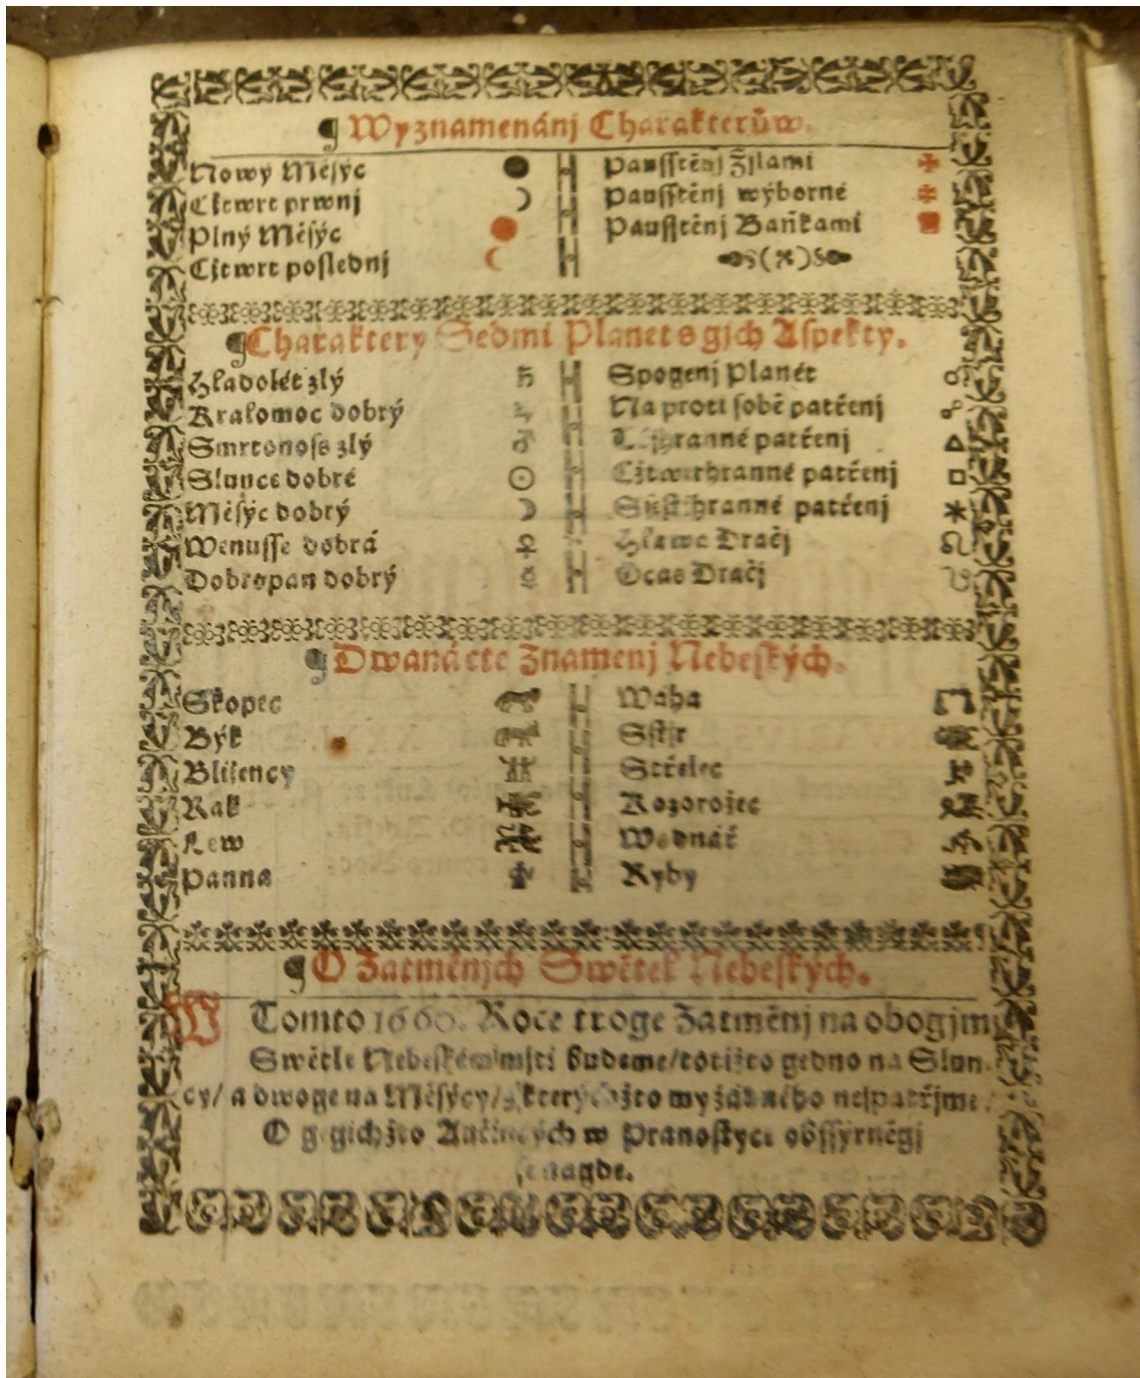 ¶ Wyznamenánj Charakterůw.
Nowý Měsýc
Cžtwrt prwnj
Plný Měsýc
Cžtwrt poslednj
Pausstěnj Žjlami
Pausstěnj wýborné
Pausstěnj Baňkami
¶ Charaktery Sedmi Planet s gich Aspekty.
Hladolét zlý ♄
Kralomoc dobrý ♃
Smrtonoss zlý ♂
Slunce dobré ☉
Měsýc dobrý ☽
Wenusse dobrá ♀
Dobropan dobrý ☿
Spogenj Planét ☌
Na proti sobě patřenj ☍
Tříhranné patřenj △
Cžtwerhranné patřenj □
Ssestihranné patřenj ⚹
Hlawa Dračj ☊
Ocas Dračj ☋
¶ Dwanácte Znamenj Nebeských.
Skopec
Býk
Bližency
Rak
Lew
Panna
Waha
Sstjr
Střelec
Kozorožec
Wodnář
Ryby
¶ O Zatměnjch Swětel Nebeských.
W Tomto 1660. Roce troge Zatměnj na obogjm
Swětle Nebeském mjti budeme/ totižto gedno na Slun-
cy/ a dwoge na Měsýcy/ kterýchžto my žádného nespatřjme.
O gegichžto Aučincých w Pranostyce obssyrněgj
se nagde.